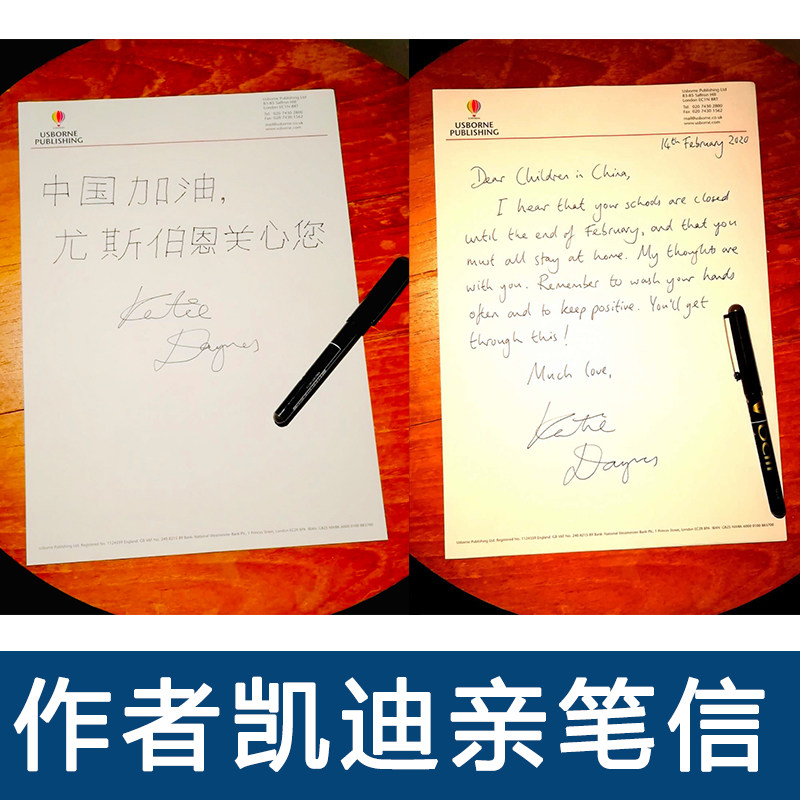 USBORNE
PUBLISHING
Usborne Publishing Ltd
83-85 Saffron Hill
London EC1N 8RT
Tel: 020 7430 2800
Fax: 020 7430 1562
mail@usborne.co.uk
www.usborne.com
中国加油,
尤斯伯恩关心您
Katie
Daynes
USBORNE
PUBLISHING
Usborne Publishing Ltd
83-85 Saffron Hill
London EC1N 8RT
Tel: 020 7430 2800
Fax: 020 7430 1562
mail@usborne.co.uk
www.usborne.com
14th February 2020
Dear Children in China,
I hear that your schools are closed
until the end of February, and that you
must all stay at home. My thoughts are
with you. Remember to wash your hands
often and to keep positive. You'll get
through this!
Much love,
Katie
Daynes
作者凯迪亲笔信